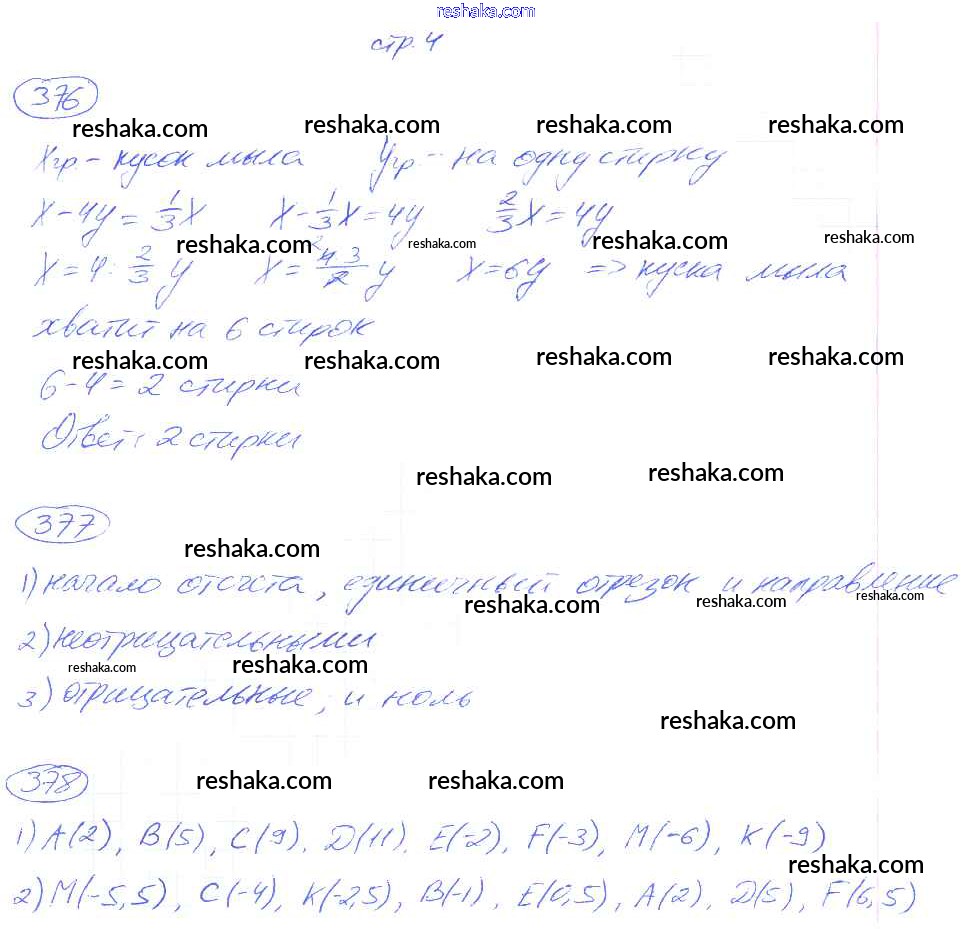 reshaka.com
стр. 4
376
reshaka.com reshaka.com reshaka.com reshaka.com
Xгр. - кусок мыла Yгр - на одну стирку
X - 4y = 1/3 X X - 1/3 X = 4y 2/3 X = 4y
reshaka.com reshaka.com reshaka.com reshaka.com
X = 4 : 2/3 y X = 4·3/2 y X = 6y => куска мыла
хватит на 6 стирок
reshaka.com reshaka.com reshaka.com reshaka.com
6 - 4 = 2 стирки
Ответ: 2 стирки
reshaka.com reshaka.com
377
reshaka.com
1) начало отсчета, единичный отрезок и направление
reshaka.com reshaka.com reshaka.com
2) неотрицательными
reshaka.com reshaka.com
3) отрицательные, и ноль
reshaka.com
378
reshaka.com reshaka.com
1) A(2), B(5), C(9), D(11), E(-2), F(-3), M(-6), K(-9)
reshaka.com
2) M(-5,5), C(-4), K(-2,5), B(-1), E(0,5), A(2), D(5), F(6,5)